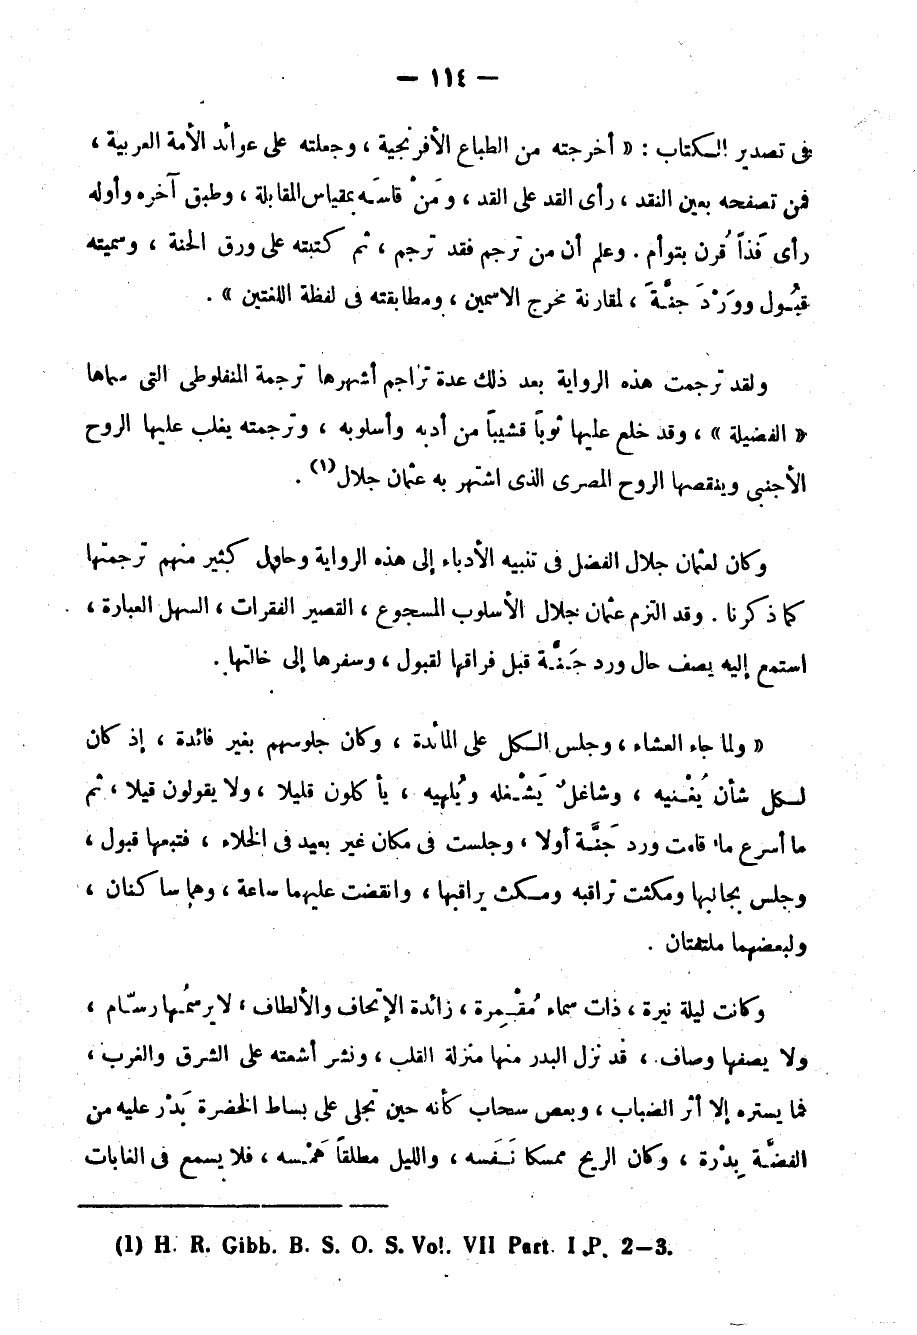 — ١١٤ —
فى تصدير الكتاب : « أخرجته من الطباع الأفرنجية ، وجعلته على عوائد الأمة العربية ،
فمن تصفحه بعين النقد ، رأى القد على القد ، ومَنْ قاسَه بمقياس المقابلة ، وطبق آخره وأوله
رأى فَذاً قُرن بتوأم . وعلم أن من ترجم فقد ترجم ، ثم كتبته على ورق الجنة ، وسميته
قبُول ووَرْدَ جنَّةَ ، لمقارنة مخرج الاسمين ، ومطابقته فى لفظة اللغتين » .
ولقد ترجمت هذه الرواية بعد ذلك عدة تراجم أشهرها ترجمة المنفلوطى التى سماها
« الفضيلة » ، وقد خلع عليها ثوباً قشيباً من أدبه وأسلوبه ، وترجمته يغلب عليها الروح
الأجنبى وينقصها الروح المصرى الذى اشتهر به عثمان جلال (١) .
وكان لعثمان جلال الفضل فى تنبيه الأدباء إلى هذه الرواية وحاول كثير منهم ترجمتها
كما ذكرنا . وقد التزم عثمان جلال الأسلوب المسجوع ، القصير الفقرات ، السهل العبارة ،
استمع إليه يصف حال ورد جَنَّة قبل فراقها لقبول ، وسفرها إلى خالتها .
« ولما جاء العشاء ، وجلس الكل على المائدة ، وكان جلوسهم بغير فائدة ، إذ كان
لكل شأن يُغْنيه ، وشاغلٌ يَشْغله ويُلهيه ، يأكلون قليلا ، ولا يقولون قيلا ، ثم
ما أسرع ما قامت ورد جَنَّة أولا ، وجلست فى مكان غير بعيد فى الخلاء ، فتبعها قبول ،
وجلس بجانبها ومكثت تراقبه ومكث يراقبها ، وانقضت عليهما ساعة ، وهما ساكنان ،
ولبعضهما ملتفتان .
وكانت ليلة نيرة ، ذات سماء مُقْمِرة ، زائدة الإتحاف والألطاف ، لا يرسمُها رسّام ،
ولا يصفها وصاف ، قد نزل البدر منها منزلة القلب ، ونشر أشعته على الشرق والغرب ،
فما يستره إلا أثر الضباب ، وبعض سحاب كأنه حين تجلى على بساط الخضرة بَدْر عليه من
الفضَّة بِدْرة ، وكان الريح ممسكا نَفَسه ، والليل مطلقاً هَمْسه ، فلا يسمع فى الغابات
(1) H. R. Gibb. B. S. O. S. Vol. VII Part. I .P. 2—3.